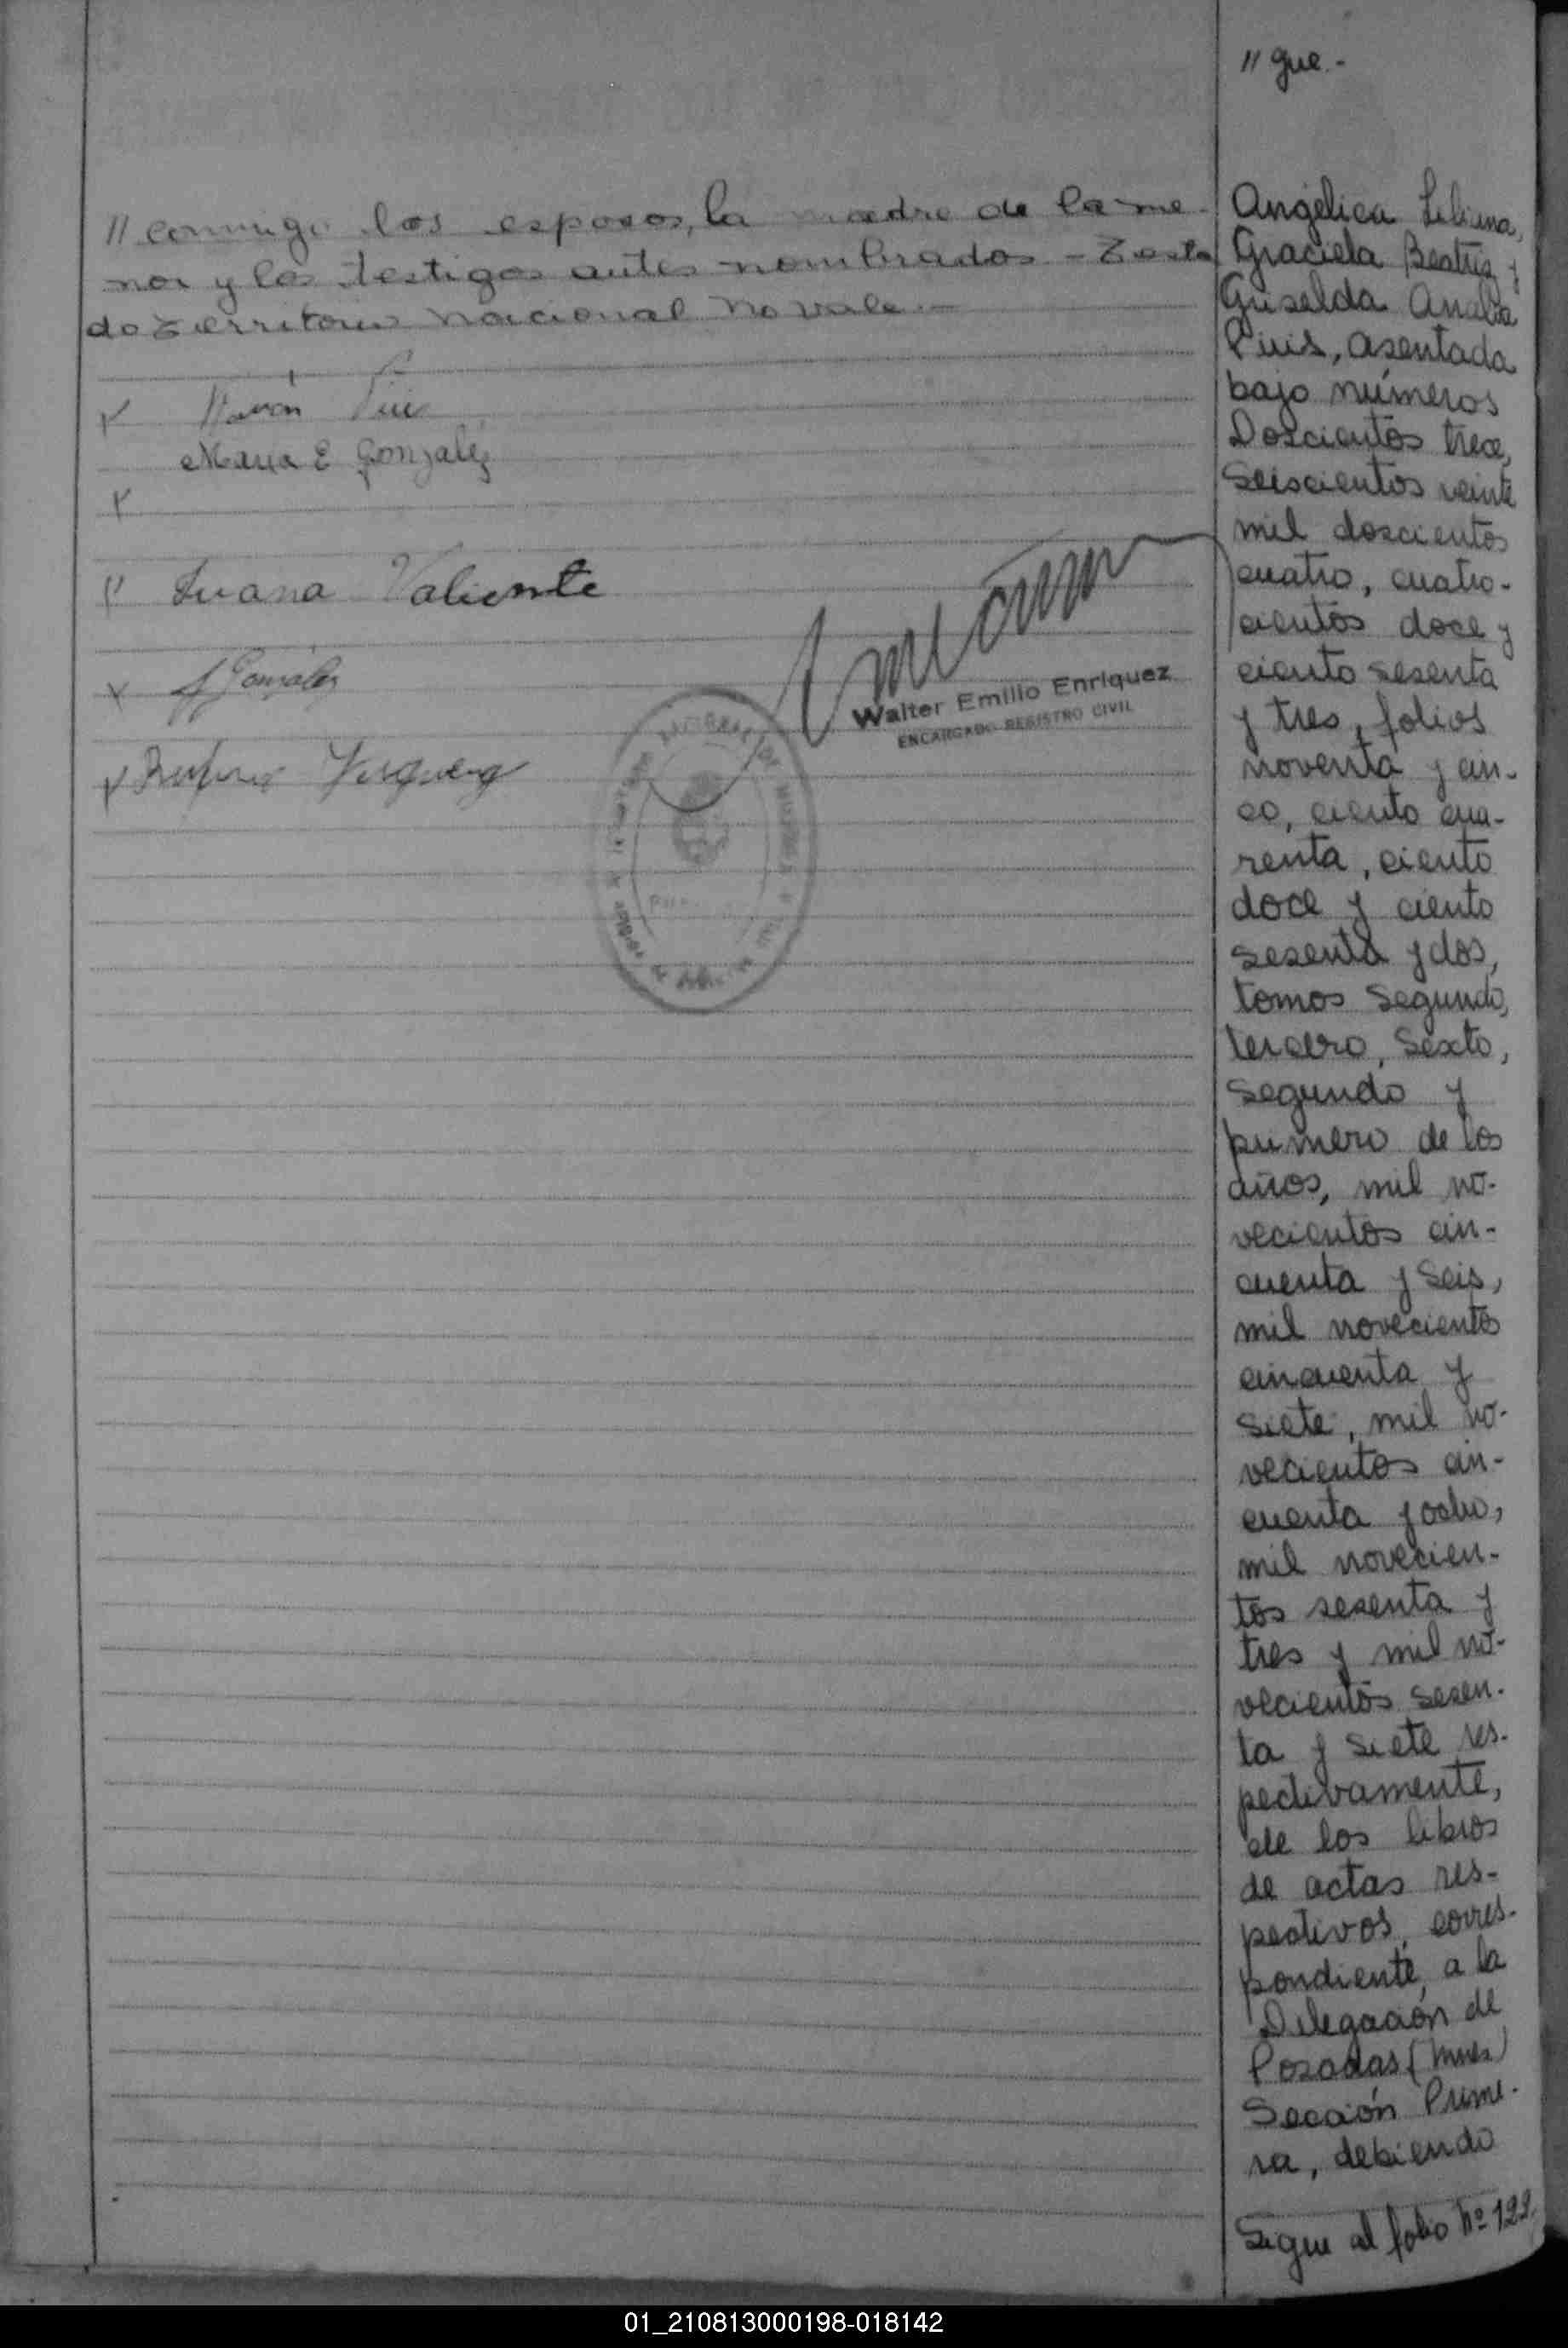 // conmigo los esposos, la madre de la me-
nor y los testigos antes nombrados - Testa
do Territorio Nacional no vale. -
Ramón
Maria E Gonzalez
Juana Valiente
Gonzalez
Walter Emilio Enriquez
ENCARGADO REGISTRO CIVIL
// gue. -
Angélica Liliana,
Graciela Beatriz y
Griselda Analia
asentada
bajo números
Doscientos trece,
seiscientos veinte
mil doscientos
cuatro, cuatro-
cientos doce y
ciento sesenta
y tres, folios
noventa y cin-
co, ciento cua-
renta, ciento
doce y ciento
sesenta y dos,
tomos segundo,
tercero, sexto,
segundo y
primero de los
años, mil no-
vecientos cin-
cuenta y seis,
mil novecientos
cincuenta y
siete, mil no-
vecientos cin-
cuenta y ocho,
mil novecien-
tos sesenta y
tres y mil no-
vecientos sesen-
ta y siete res-
pectivamente,
de los libros
de actas res-
pectivos, corres-
pondiente, a la
Delegación de
Posadas (Mnes)
Sección Prime-
ra, debiendo
Sigue al folio Nº
01_210813000198-018142